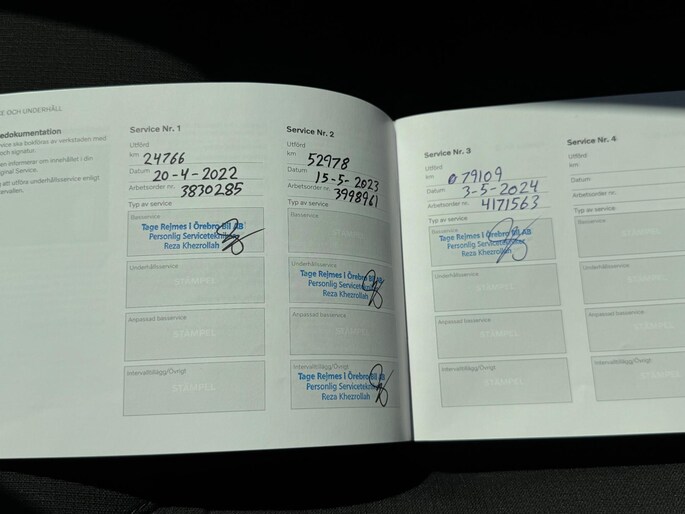 E OCH UNDERHÅLL
edokumentation
vice ska bokföras av verkstaden med
och signatur.
en informerar om innehållet i din
ginal Service.
att utföra underhållsservice enligt
ervallen.
Service Nr. 1
Utförd
km 24766
Datum 20-4-2022
Arbetsorder nr. 3830285
Typ av service
Basservice
Tage Rejmes I Örebro Bil AB
Personlig Servicetekniker
Reza Khezrollah
Underhållsservice
STÄMPEL
Anpassad basservice
STÄMPEL
Intervalltillägg/Övrigt
STÄMPEL
Service Nr. 2
Utförd
km 52978
Datum 15-5-2023
Arbetsorder nr. 3998961
Typ av service
Basservice
STÄMPEL
Underhållsservice
Tage Rejmes I Örebro Bil AB
Personlig Servicetekniker
Reza Khezrollah
Anpassad basservice
STÄMPEL
Intervalltillägg/Övrigt
Tage Rejmes I Örebro Bil AB
Personlig Servicetekniker
Reza Khezrollah
Service Nr. 3
Utförd
km 79109
Datum 3-5-2024
Arbetsorder nr. 4171563
Typ av service
Basservice
Tage Rejmes I Örebro Bil AB
Personlig Servicetekniker
Reza Khezrollah
Underhållsservice
STÄMPEL
Anpassad basservice
STÄMPEL
Intervalltillägg/Övrigt
STÄMPEL
Service Nr. 4
Utförd
km
Datum
Arbetsorder nr.
Typ av service
Basservice
STÄMPEL
Underhållsservice
STÄMPEL
Anpassad basservice
STÄMPEL
Intervalltillägg/Övrigt
STÄMPEL